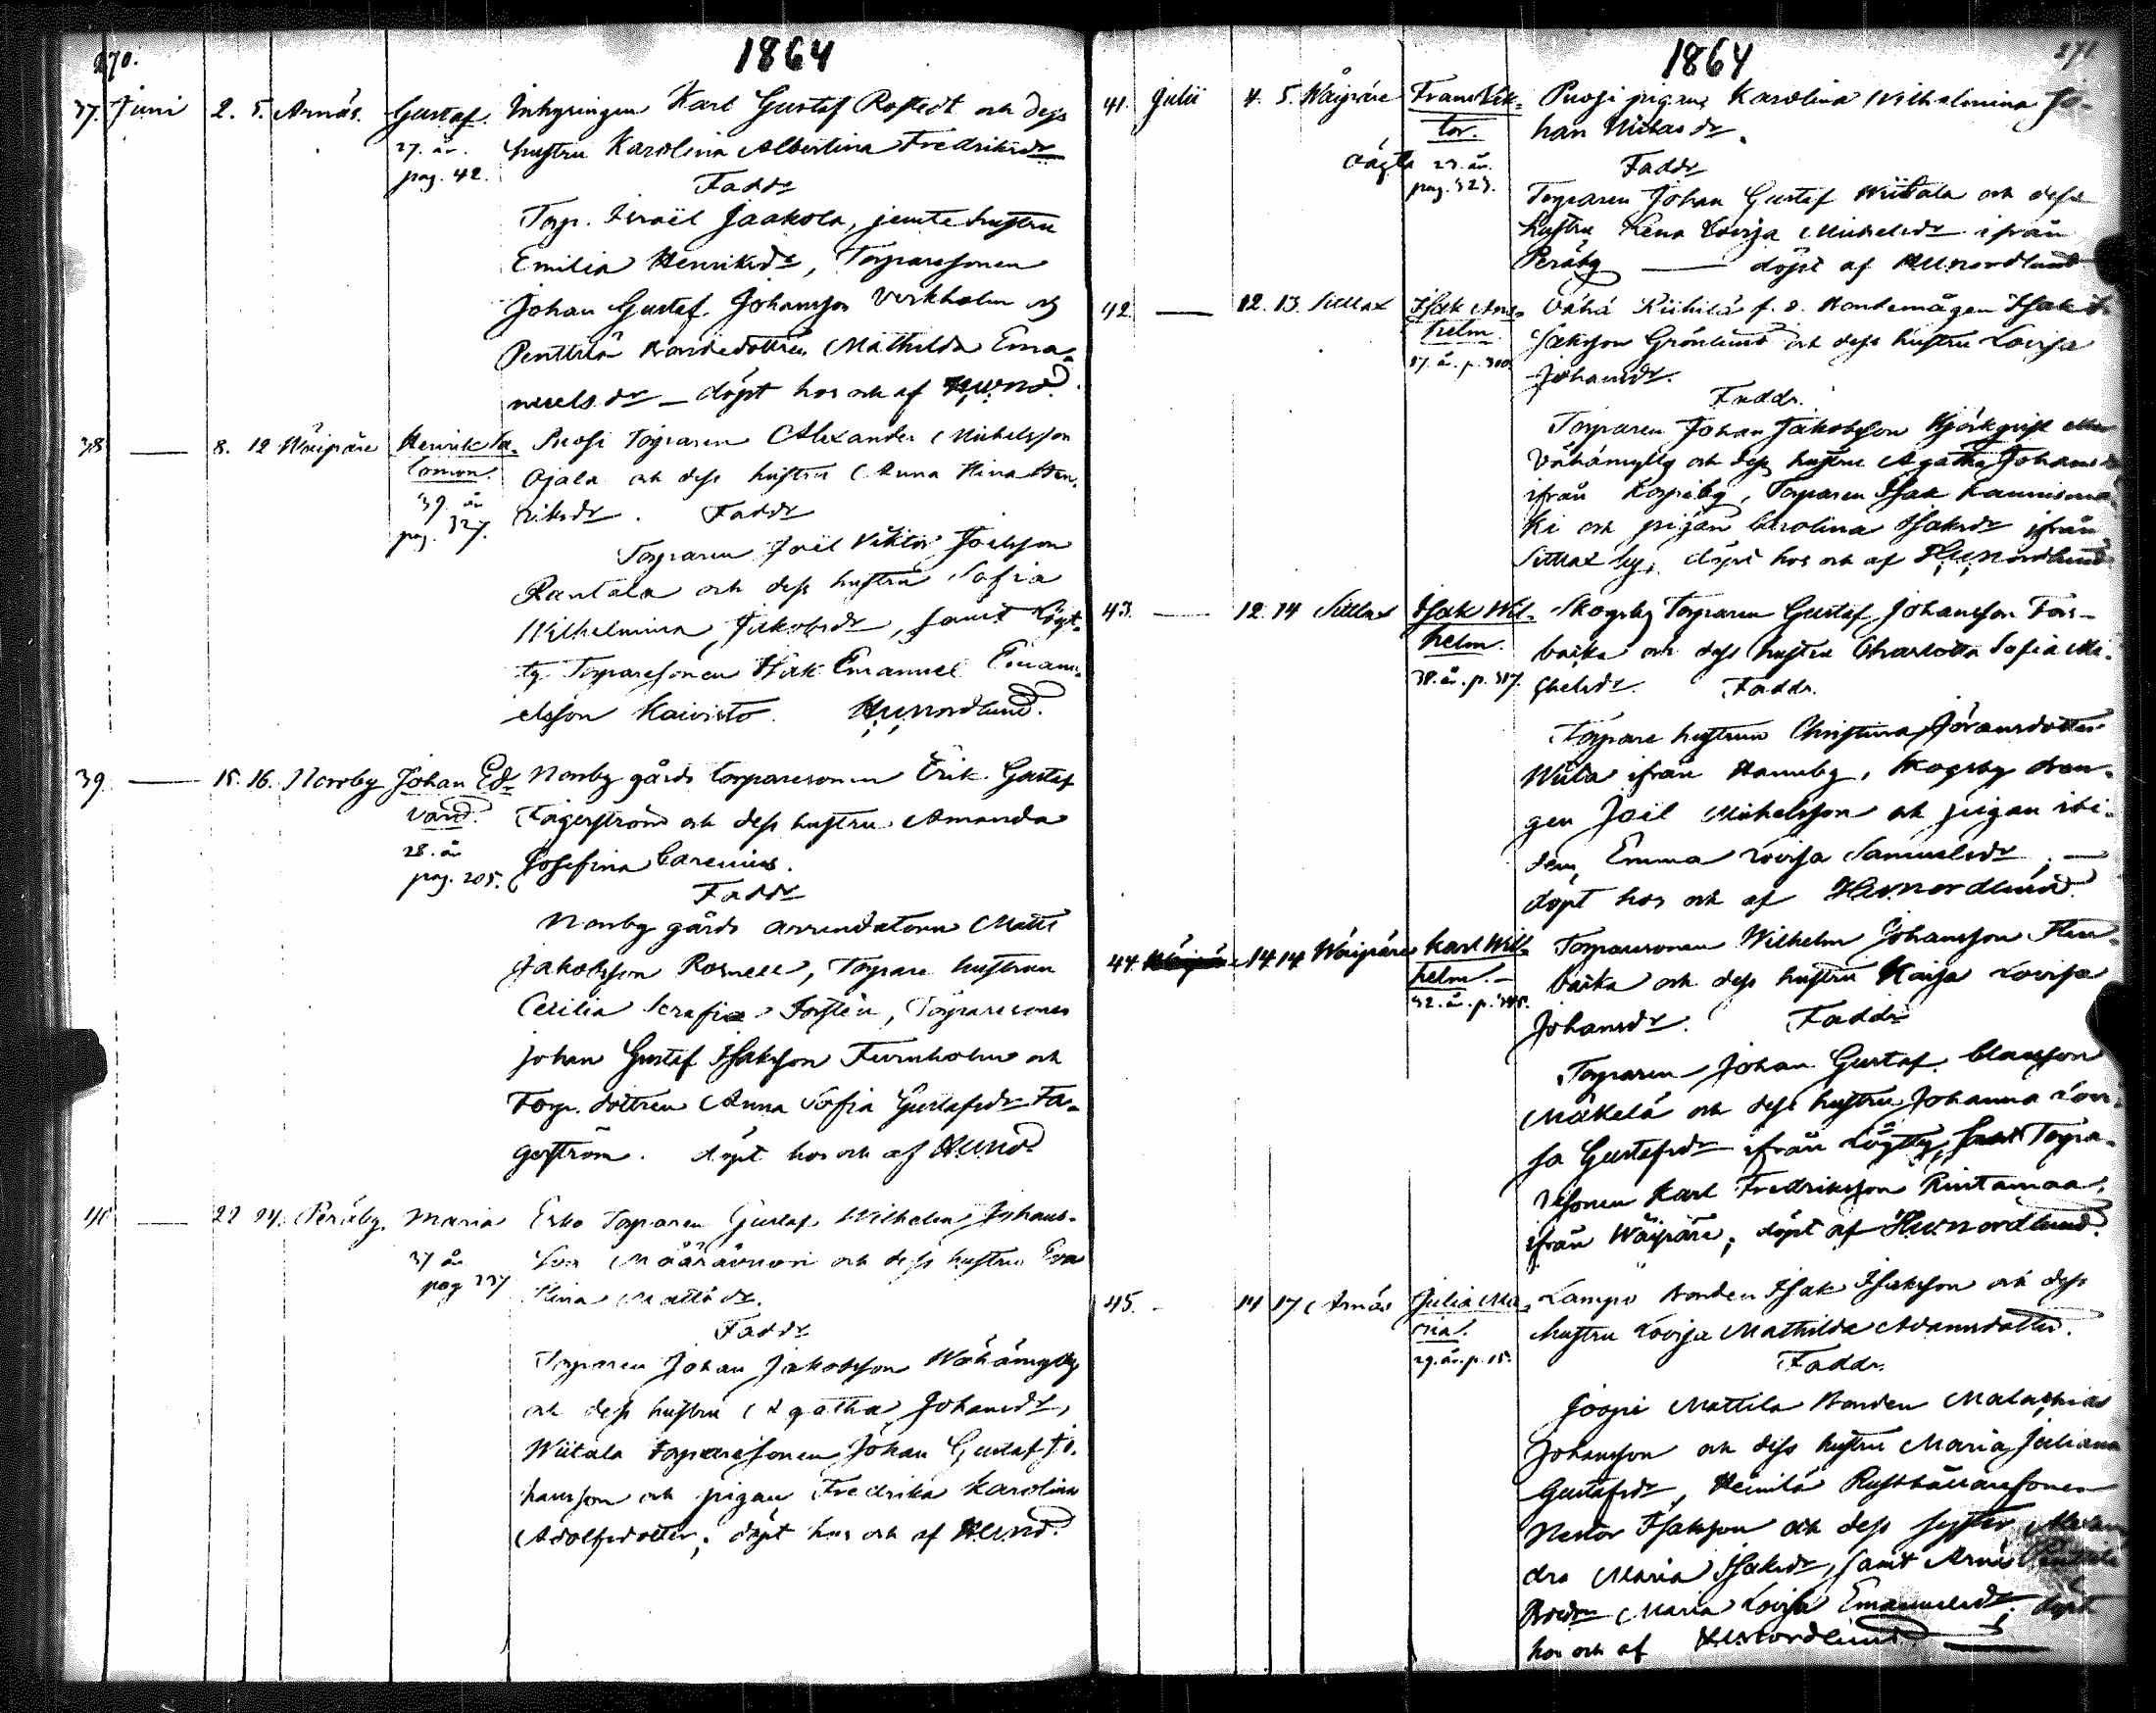 270.
1864
37. Juni 2. 5. Arnäs. Gustaf. Inhysingen Karl Gustaf Rostedt och dess
27. år. hustru Karolina Albertina Fredriksdr
pag. 42.
Faddr
Torp. Israël Jaakola, jemte hustru
Emilia Henriksdr, Torparesonen
Johan Gustaf Johansson Verkholm och
Penttilä bondedottren Mathilda Ema-
nuelsdr – döpt hos och af HWNd.
38 — 8. 12 Wäipäre Henrik Sa- Puosi Torparen Alexander Michelsson
lomon. Ojala och dess hustru Anna Stina Hen-
39. år riksdr. Faddr
pag. 327.
Torparen Joël Viktor Joelsson
Rantala och dess hustru Sofia
Wilhelmina Jakobsdr, samt Lögt-
ty Torparesonen Isak Emanuel Emanu-
elsson Kaivisto. HWNordlund.
39 — 15. 16. Norrby Johan Ed- Norrby gårds torparesonen Erik Gustaf
vard. Fagerström och dess hustru Amanda
28. år Josefina Carenius.
pag. 205.
Faddr
Norrby gårds arrendatorn Matts
Jakobsson Rosnell, Torpare hustrun
Cecilia Serafia Forstén, Torparesonen
Johan Gustaf Isaksson Furuholm och
Torp. dottren Anna Sofia Gustafsdr Fa-
gerström. döpt hos och af HWNd
40 — 22 24. Peräby. Maria Erko Torparen Gustaf Wilhelm Johans-
37 år son Määrävuori och dess hustru Eva
pag 337 Stina Mattsdr.
Faddr
Torparen Johan Jakobsson Wähämylly
och dess hustru Agatha Johansdr,
Wiitala torparesonen Johan Gustaf Jo-
hansson och pigan Fredrika Karolina
Adolfsdotter; döpt hos och af HWNd.
271
1864
41. Julii 4. 5. Wäipäre Frans Vik- Puosi pigans Karolina Wilhelmina Jo-
tor. han Niklasdr.
oägta 23. år. Faddr
pag. 323.
Torparen Johan Gustaf Wiitala och dess
hustru Lena Lovisa Michelsdr ifrån
Peräby — döpt af HWNordlund
42 — 12. 13. Sittlax Isak Ans- Vähä Riihilä f. d. Bondemågen Isak I-
helm saksson Grönlund och dess hustru Lovisa
37. år. p. 300. Johansdr.
Faddr.
Torparen Johan Jakobsson eller
Vähämylly och dess hustru Agatha Johansdr
ifrån Korpiby, Torparen Isak Kaunismä-
ki och pigan Carolina Isaksdr ifrån
Sittlax by; döpt hos och af HWNordlund
43. — 12. 14 Sittlax Isak Wil- Skogsby Torparen Gustaf Johansson Fors-
helm. backa och dess hustru Charlotta Sofia Mi-
38. år. p. 317. chelsdr. Faddr.
Torpare hustrun Christina Göransdotter
Wiita ifrån Hannuby, Skogsby drän-
gen Joël Michelsson och pigan ibi-
dem, Emma Lovisa Samuelsdr; —
döpt hos och af HWNordlund.
44. 14 14 Wäipäre Karl Wil- Torparesonen Wilhelm Johansson Sten-
helm. – backa och dess hustru Kaisa Lovisa
32. år. p. Johansdr. Faddr
Torparen Johan Gustaf Classon
Mäkelä och dess hustru Johanna Lovi-
sa Gustafsdr ifrån Lögtty, samt Torpa-
resonen Karl Fredriksson Rintamaa,
ifrån Wäipäre; döpt af HWNordlund.
45. – 14 17 Arnäs Julia Ma- Lampi Bonden Isak Isaksson och dess
ria. hustru Lovisa Mathilda Adamsdotter.
29. år. p. 15.
Faddr.
Jooppi Mattila Bonden Malachias
Johansson och dess hustru Maria Juliana
Gustafsdr, Heinilä Rusthållaresonen
Nestor Isaksson och dess syster
dra Maria Isaksdr, samt Arnäs Penttilä
Maria Lovisa Emanuelsdr; döpt
hos och af HWNordlund.